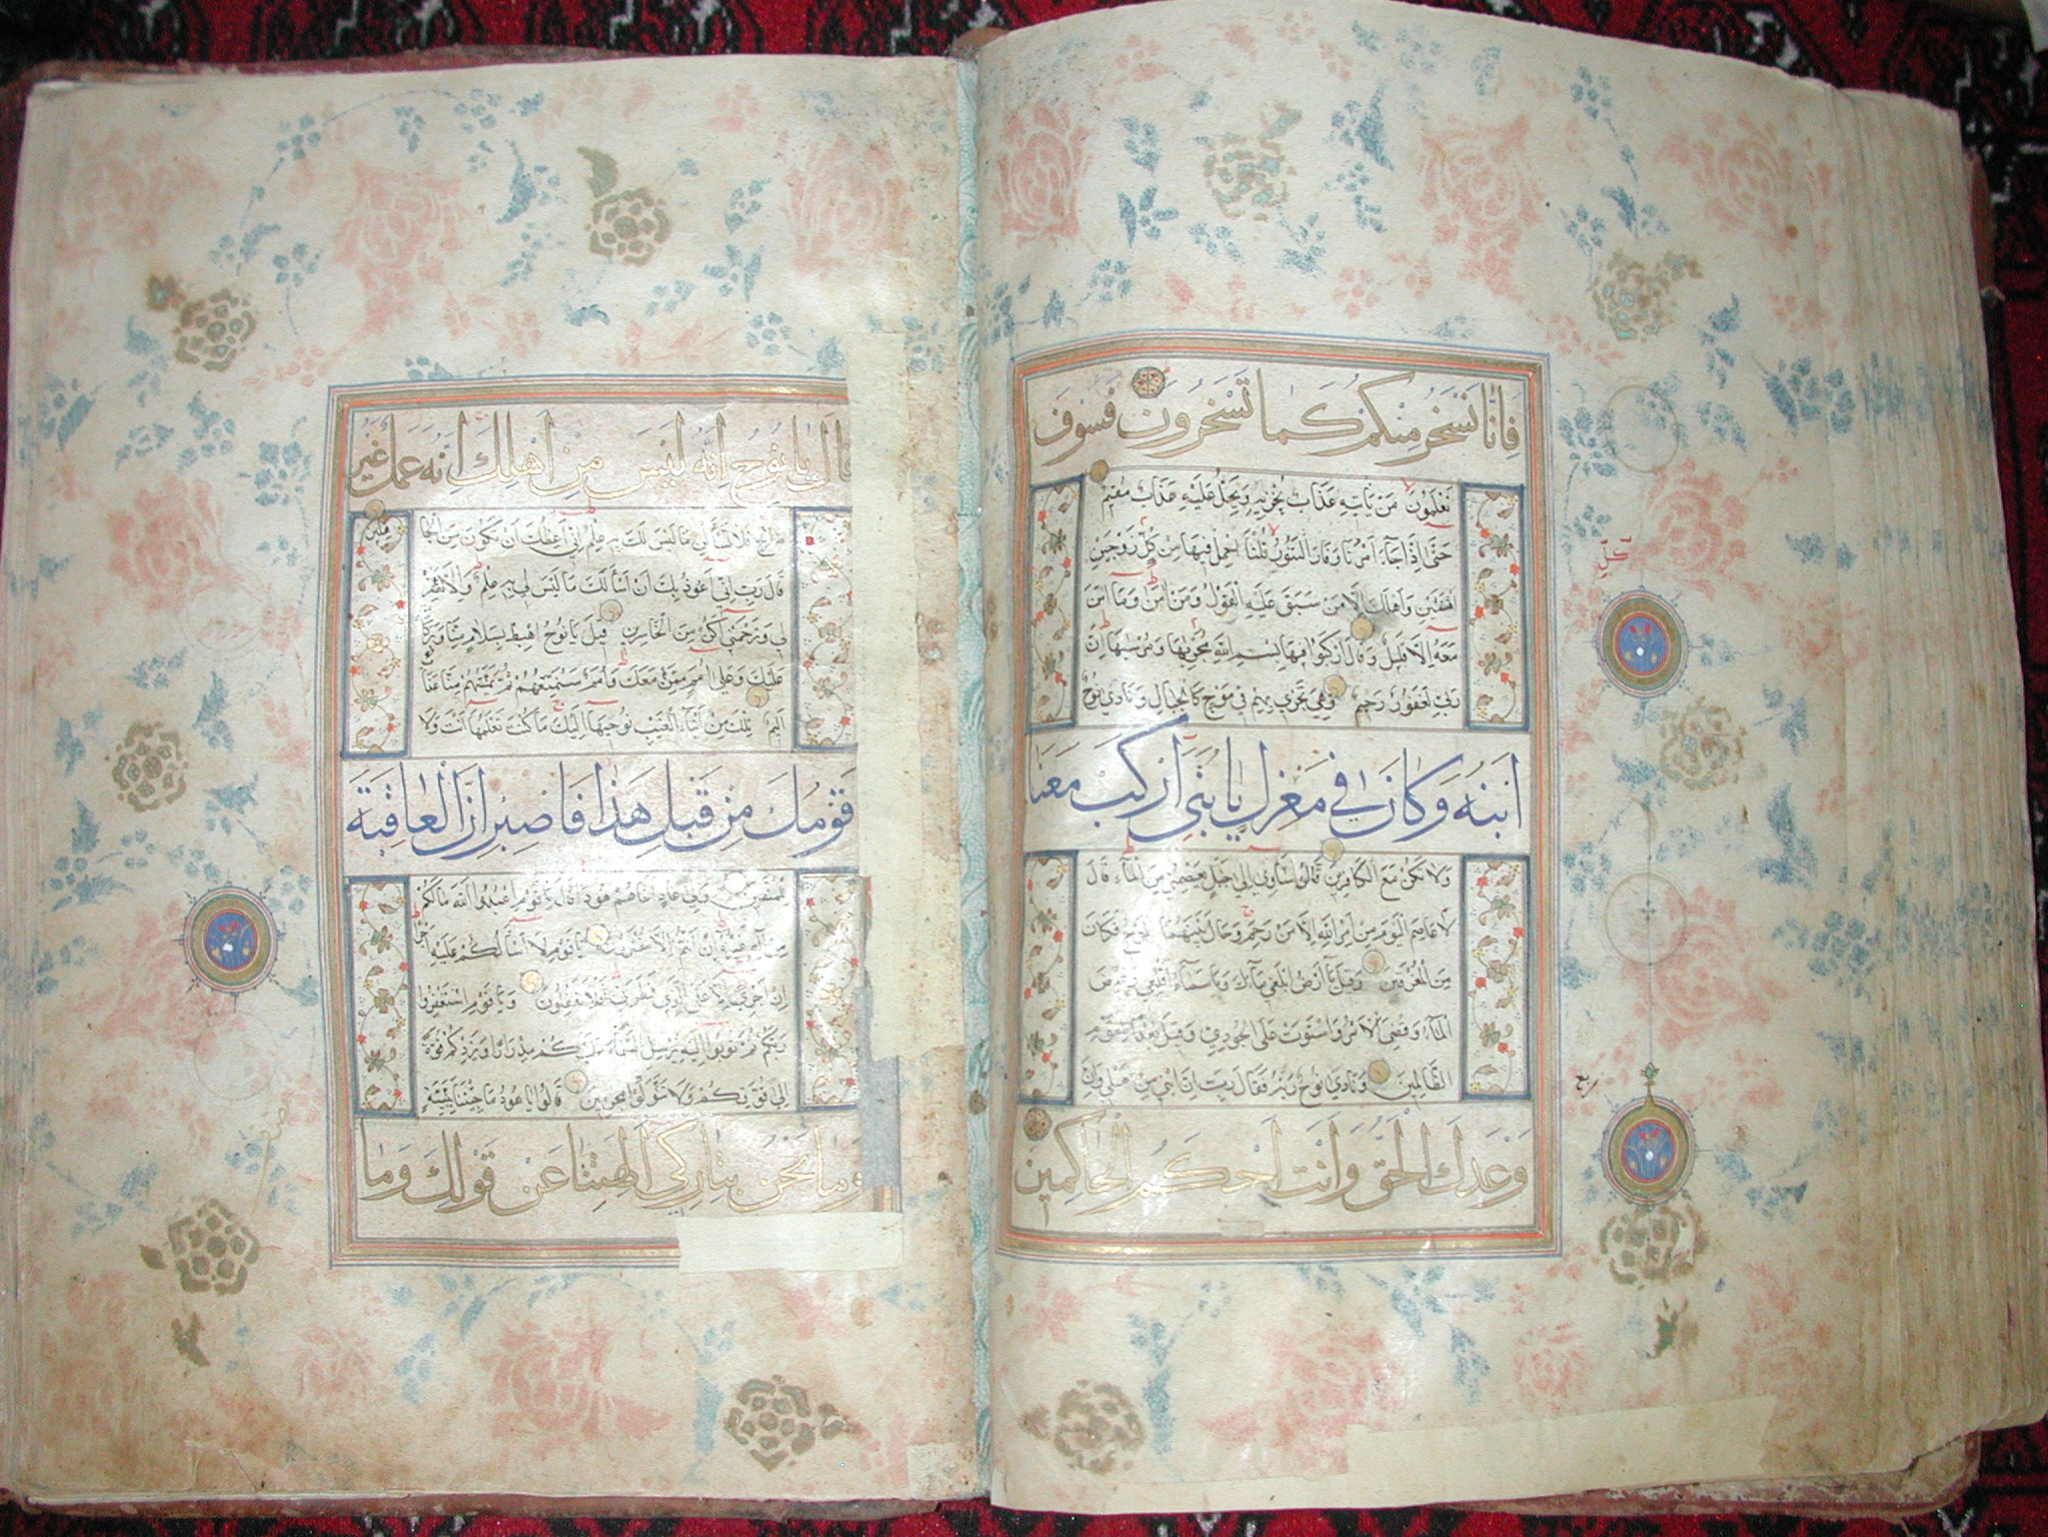 فَإِنَّا نَسْخَرُ مِنْكُمْ كَمَا تَسْخَرُونَ فَسَوْفَ
تَعْلَمُونَ مَنْ يَأْتِيهِ عَذَابٌ يُخْزِيهِ وَيَحِلُّ عَلَيْهِ عَذَابٌ مُقِيمٌ
حَتَّى إِذَا جَاءَ أَمْرُنَا وَفَارَ التَّنُّورُ قُلْنَا احْمِلْ فِيهَا مِنْ كُلٍّ زَوْجَيْنِ
اثْنَيْنِ وَأَهْلَكَ إِلَّا مَنْ سَبَقَ عَلَيْهِ الْقَوْلُ وَمَنْ آمَنَ وَمَا آمَنَ
مَعَهُ إِلَّا قَلِيلٌ وَقَالَ ارْكَبُوا فِيهَا بِسْمِ اللَّهِ مَجْرَاهَا وَمُرْسَاهَا إِنَّ
رَبِّي لَغَفُورٌ رَحِيمٌ وَهِيَ تَجْرِي بِهِمْ فِي مَوْجٍ كَالْجِبَالِ وَنَادَى نُوحٌ
ابْنَهُ وَكَانَ فِي مَعْزِلٍ يَا بُنَيَّ ارْكَبْ مَعَنَا
وَلَا تَكُنْ مَعَ الْكَافِرِينَ قَالَ سَآوِي إِلَى جَبَلٍ يَعْصِمُنِي مِنَ الْمَاءِ قَالَ
لَا عَاصِمَ الْيَوْمَ مِنْ أَمْرِ اللَّهِ إِلَّا مَنْ رَحِمَ وَحَالَ بَيْنَهُمَا الْمَوْجُ فَكَانَ
مِنَ الْمُغْرَقِينَ وَقِيلَ يَا أَرْضُ ابْلَعِي مَاءَكِ وَيَا سَمَاءُ أَقْلِعِي وَغِيضَ
الْمَاءُ وَقُضِيَ الْأَمْرُ وَاسْتَوَتْ عَلَى الْجُودِيِّ وَقِيلَ بُعْدًا لِلْقَوْمِ
الظَّالِمِينَ وَنَادَى نُوحٌ رَبَّهُ فَقَالَ رَبِّ إِنَّ ابْنِي مِنْ أَهْلِي وَإِنَّ
وَعْدَكَ الْحَقُّ وَأَنْتَ أَحْكَمُ الْحَاكِمِينَ
قَالَ يَا نُوحُ إِنَّهُ لَيْسَ مِنْ أَهْلِكَ إِنَّهُ عَمَلٌ غَيْرُ
صَالِحٍ فَلَا تَسْأَلْنِي مَا لَيْسَ لَكَ بِهِ عِلْمٌ إِنِّي أَعِظُكَ أَنْ تَكُونَ مِنَ الْجَا
هِلِينَ
قَالَ رَبِّ إِنِّي أَعُوذُ بِكَ أَنْ أَسْأَلَكَ مَا لَيْسَ لِي بِهِ عِلْمٌ وَإِلَّا تَغْفِرْ
لِي وَتَرْحَمْنِي أَكُنْ مِنَ الْخَاسِرِينَ قِيلَ يَا نُوحُ اهْبِطْ بِسَلَامٍ مِنَّا وَبَرَكَاتٍ
عَلَيْكَ وَعَلَى أُمَمٍ مِمَّنْ مَعَكَ وَأُمَمٌ سَنُمَتِّعُهُمْ ثُمَّ يَمَسُّهُمْ مِنَّا عَذَابٌ
أَلِيمٌ تِلْكَ مِنْ أَنْبَاءِ الْغَيْبِ نُوحِيهَا إِلَيْكَ مَا كُنْتَ تَعْلَمُهَا أَنْتَ وَلَا
قَوْمُكَ مِنْ قَبْلِ هَذَا فَاصْبِرْ إِنَّ الْعَاقِبَةَ
لِلْمُتَّقِينَ وَإِلَى عَادٍ أَخَاهُمْ هُودًا قَالَ يَا قَوْمِ اعْبُدُوا اللَّهَ مَا لَكُمْ
مِنْ إِلَهٍ غَيْرُهُ إِنْ أَنْتُمْ إِلَّا مُفْتَرُونَ يَا قَوْمِ لَا أَسْأَلُكُمْ عَلَيْهِ أَجْرًا
إِنْ أَجْرِيَ إِلَّا عَلَى الَّذِي فَطَرَنِي أَفَلَا تَعْقِلُونَ وَيَا قَوْمِ اسْتَغْفِرُوا
رَبَّكُمْ ثُمَّ تُوبُوا إِلَيْهِ يُرْسِلِ السَّمَاءَ عَلَيْكُمْ مِدْرَارًا وَيَزِدْكُمْ قُوَّةً
إِلَى قُوَّتِكُمْ وَلَا تَتَوَلَّوْا مُجْرِمِينَ قَالُوا يَا هُودُ مَا جِئْتَنَا بِبَيِّنَةٍ
وَمَا نَحْنُ بِتَارِكِي آلِهَتِنَا عَنْ قَوْلِكَ وَمَا